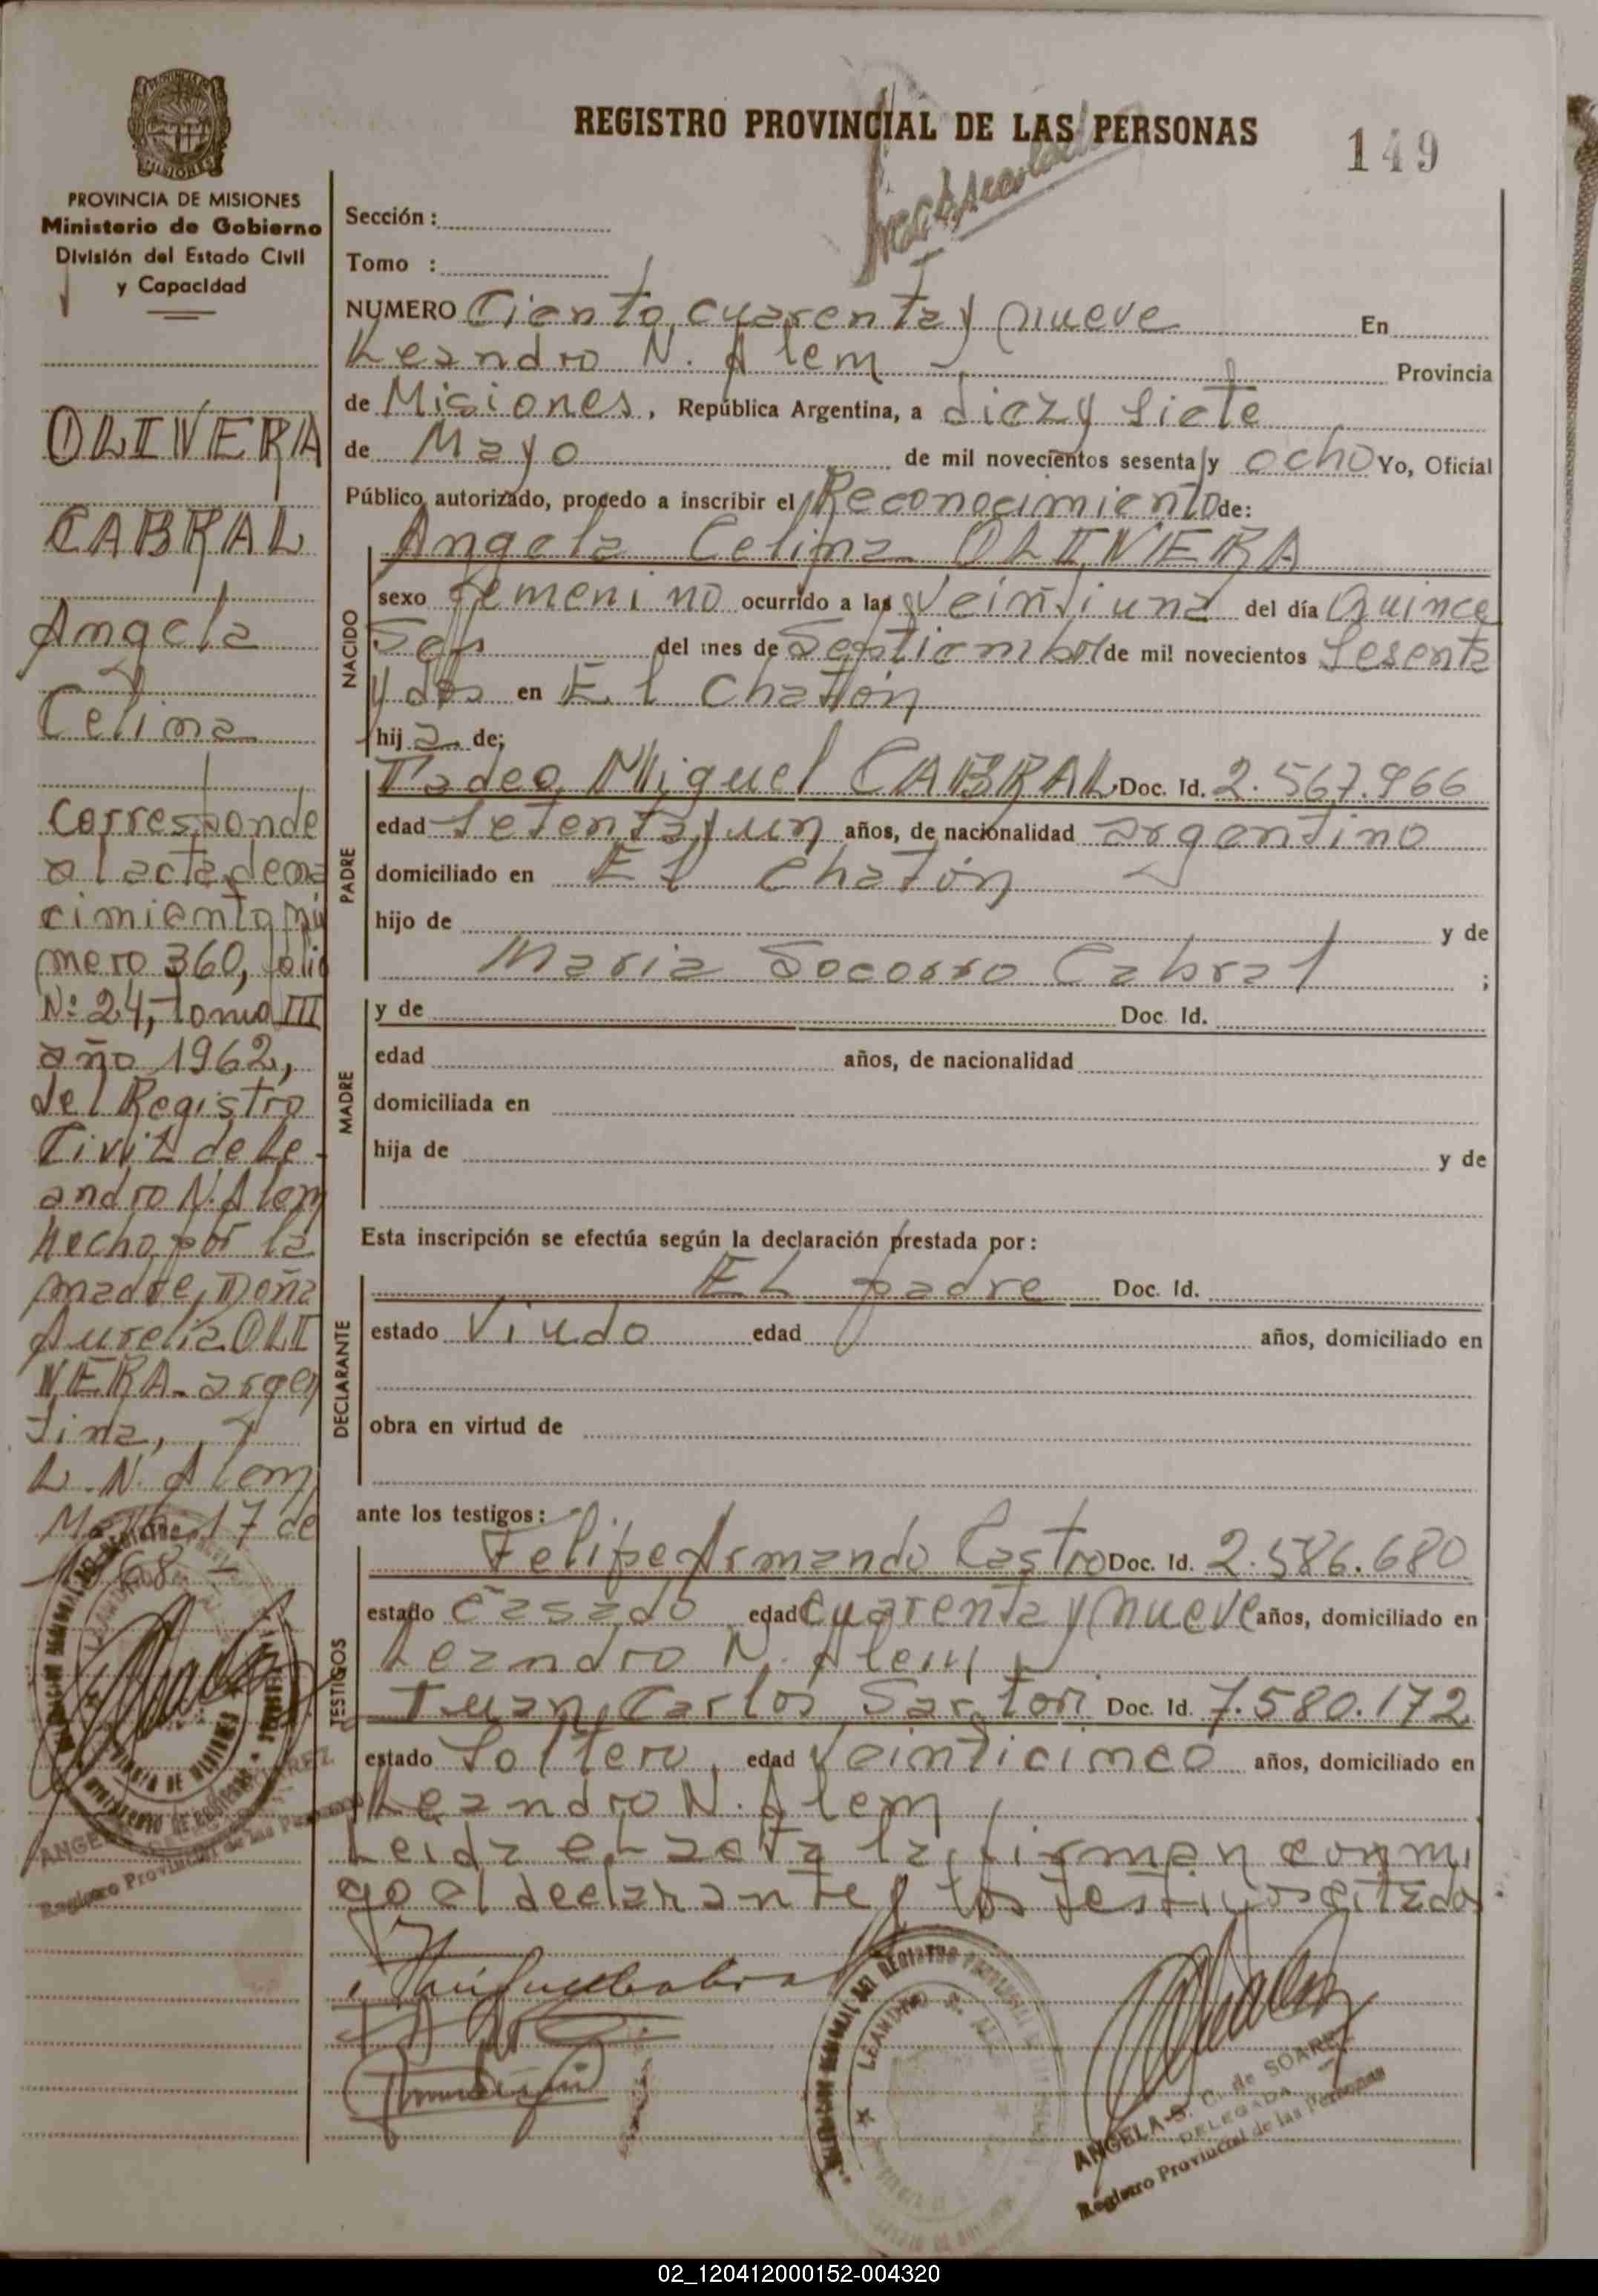 REGISTRO PROVINCIAL DE LAS PERSONAS
149
PROVINCIA DE MISIONES
Ministerio de Gobierno
División del Estado Civil
y Capacidad
OLIVERA
CABRAL
Angela
Celima
Corresponde
al acta de na
cimiento nú
mero 360, folio
Nº 24, tomo III
año 1962,
del Registro
Civil de Le-
andro N. Alem
hecho por la
madre, Doña
Aurelia OLI
VERA - argen
tina,
L. N. Alem,
Mayo 17 de
1968
Sección :
Tomo :
NUMERO Ciento cuarenta y nueve En
Leandro N. Alem Provincia
de Misiones, República Argentina, a diez y siete
de Mayo de mil novecientos sesenta y ocho Yo, Oficial
Público autorizado, procedo a inscribir el Reconocimiento de:
Angela Celima OLIVERA
NACIDO
sexo femenino ocurrido a las veintiuna del día Quince
del mes de Septiembre de mil novecientos sesenta
y dos en El Chatón
hija de;
PADRE
Tadeo Miguel CABRAL Doc. Id. 2.567.966
edad setenta y un años, de nacionalidad argentino
domiciliado en El Chatón
hijo de y de
Maria Socorro Cabral ;
MADRE
y de Doc. Id.
edad años, de nacionalidad
domiciliada en
hija de y de
Esta inscripción se efectúa según la declaración prestada por :
DECLARANTE
El padre Doc. Id.
estado Viudo edad años, domiciliado en
obra en virtud de
ante los testigos :
TESTIGOS
Felipe Armando Castro Doc. Id. 2.586.680
estado casado edad cuarenta y nueve años, domiciliado en
Leandro N. Alem
Juan Carlos Sartori Doc. Id. 7.580.172
estado soltero, edad veinticinco años, domiciliado en
Leandro N. Alem
Leida el acta la firman conmi
go el declarante y los testigos citados.
LEANDRO N. ALEM
ANGELA S. C. de SOAREZ
DELEGADA
Registro Provincial de las Personas
02_120412000152-004320